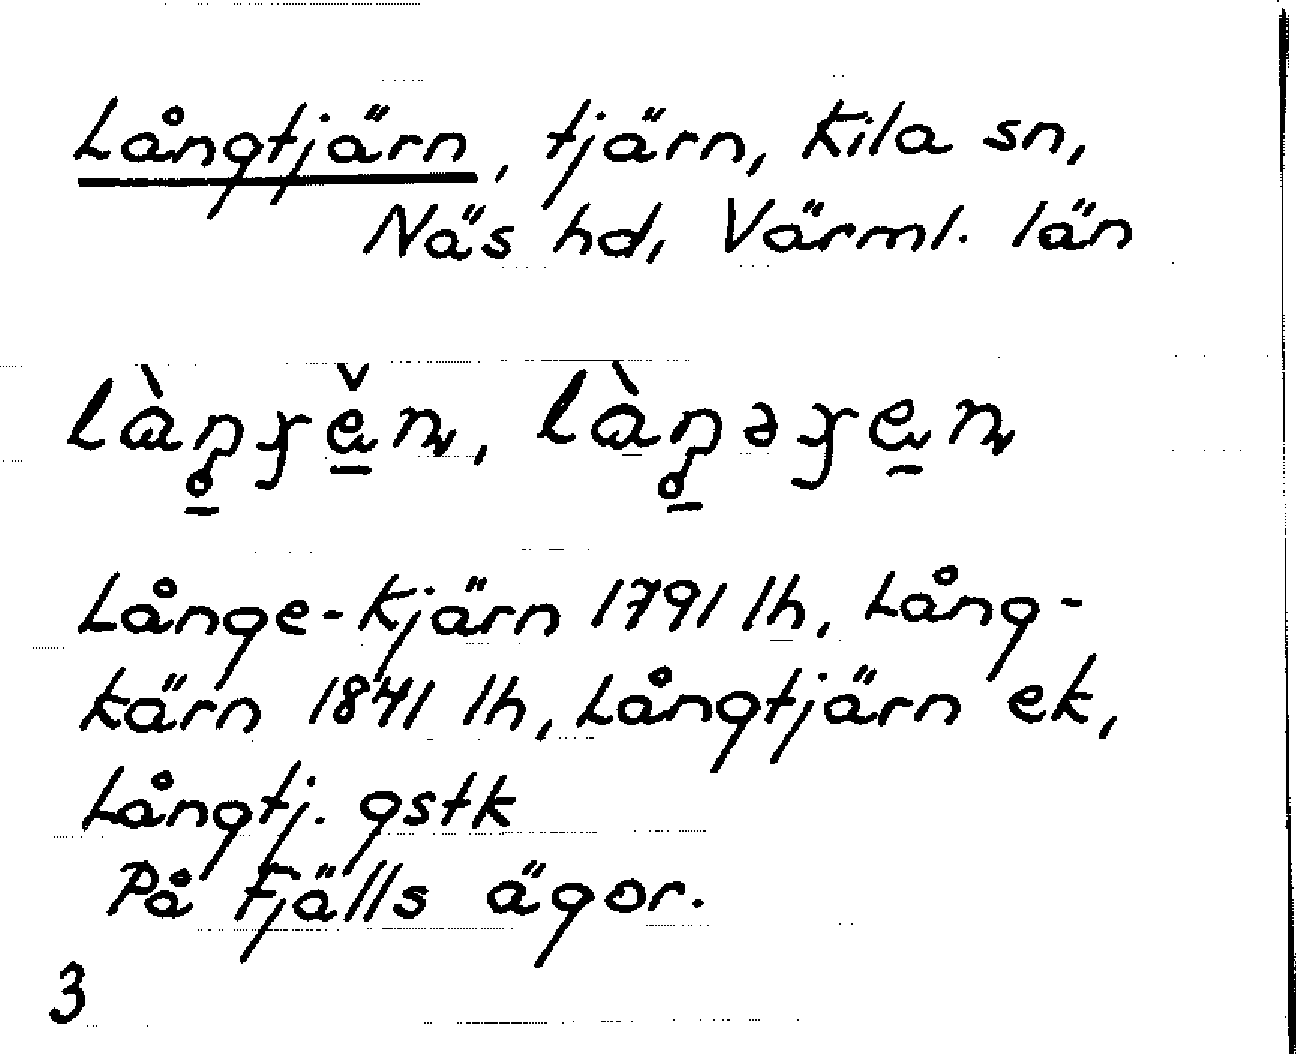 Långtjärn, tjärn, Kila sn,
Näs hd, Värml. län
Långe-Kjärn 1791 lh, Lång-
kärn 1841 lh, Långtjärn ek,
Långtj. gstk
På Fjälls ägor.
3